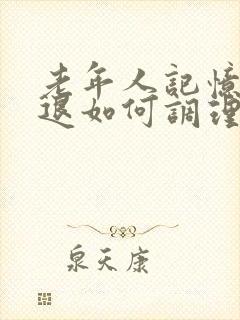 老年人記憶
退如何調理
泉天康